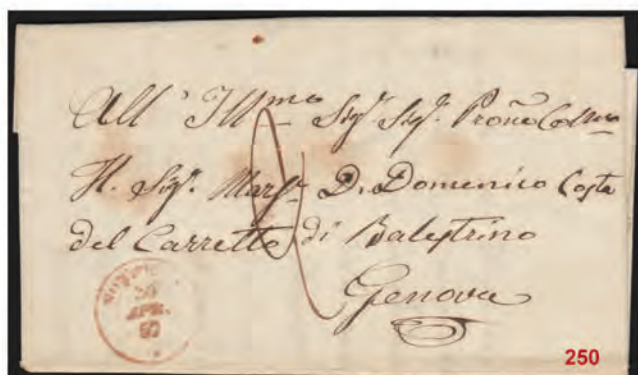 All' Ill.mo Sig.r Sig.r Prone Col.mo
Il Sig.r Mar.se D. Domenico Costa
del Carretto di Balestrino
Genova
250